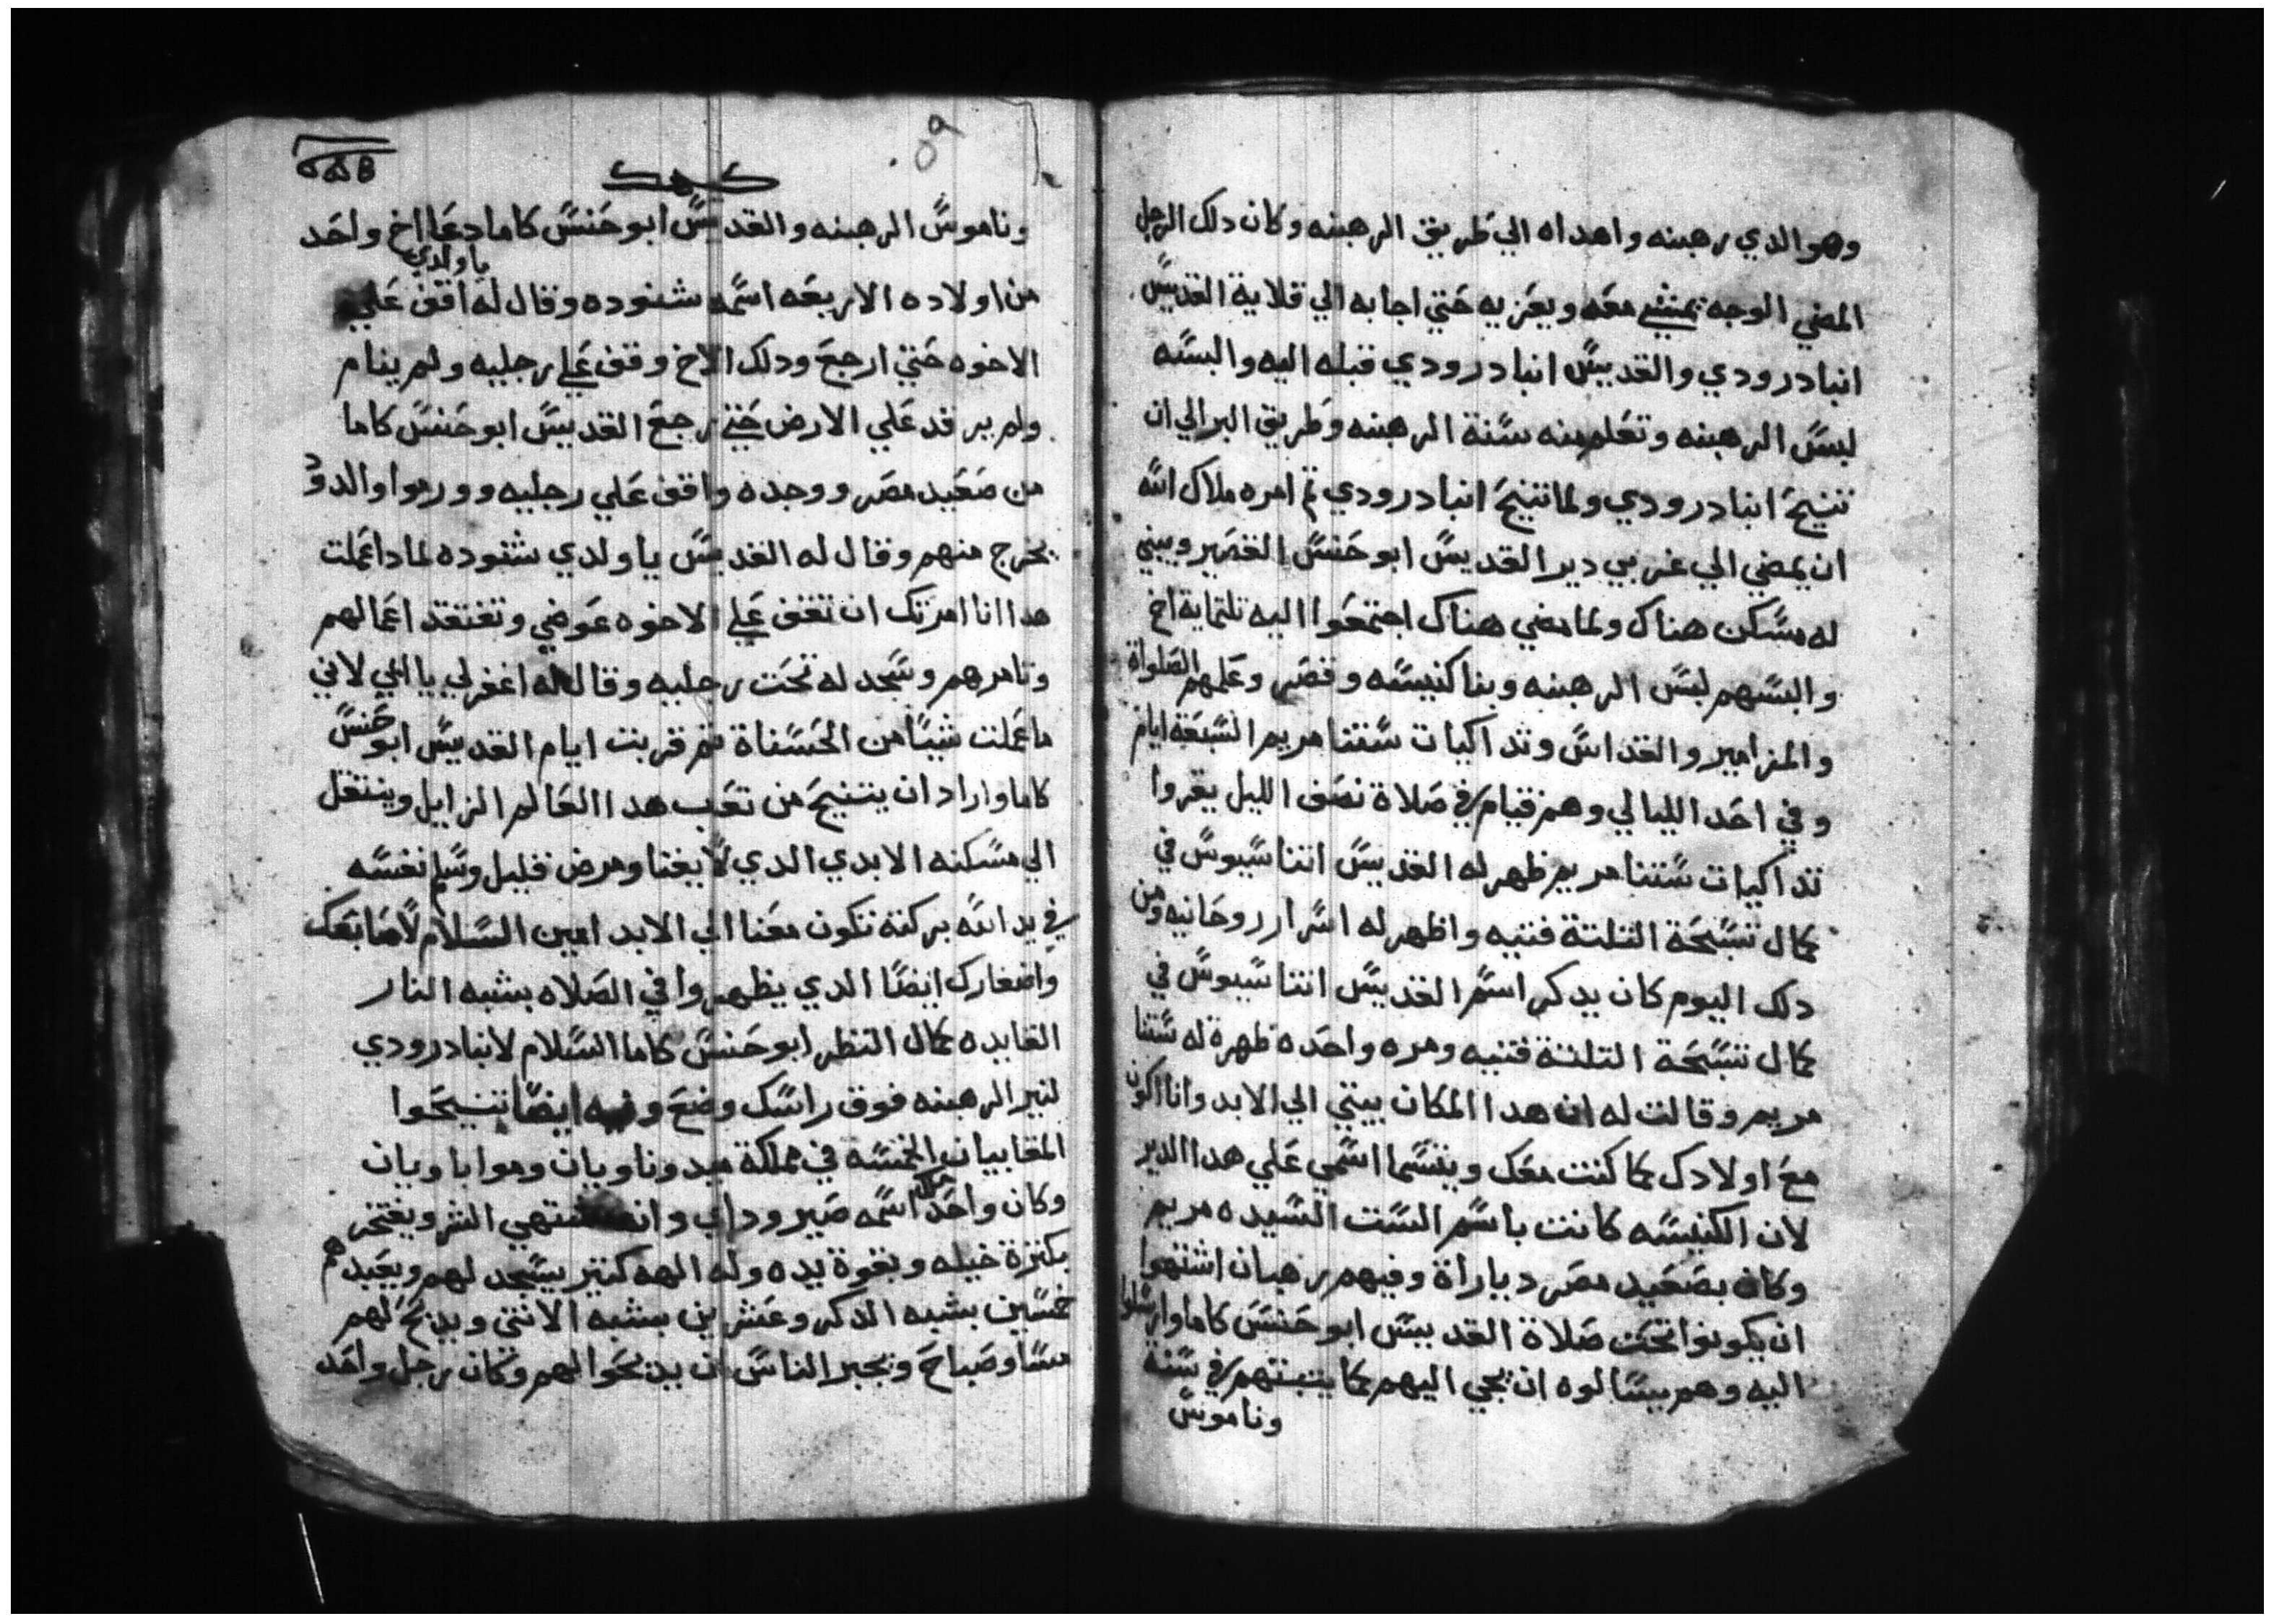 وهو الدي رهبنه واهداه الي طريق الرهبنه وكان دلك الرجل
المضي الوجه يمشي معه ويعزيه حتي اجابه الي قلاية القديس
انبا درودي والقديس انبا درودي قبله اليه والبسه
لبس الرهبنه وتعلم منه سنة الرهبنه وطريق البر الي ان
تنيح انبا درودي ولما تنيح انبا درودي تم امره ملاك الله
ان يمضي الي غربي دير القديس ابو حنس القصير ويبني
له مسكن هناك ولما مضي هناك اجتمعوا اليه تلتماية اخ
والبسهم لبس الرهبنه وبنا كنيسه وقصر وعلمهم الصلواة
والمزامير والقداس وتداكيات ستنا مريم السبعة ايام
وفي احد الليالي وهم قيام في صلاة نصف الليل يقروا
تداكيات ستنا مريم ظهر له القديس اتناسيوس في
كمال تسبحة التلتة فتيه واظهر له اسرار روحانيه ومن
دلك اليوم كان يدكر اسم القديس اتناسيوس في
كمال تسبحة التلتة فتيه ومره واحده ظهرة له ستنا
مريم وقالت له ان هدا المكان بيتي الي الابد وانا اكون
مع اولادك كما كنت معك ويتسما اسمي علي هدا الدير
لان الكنيسه كانت باسم الست السيده مريم
وكان بصعيد مصر دياراة وفيهم رهبان اشتهوا
ان يكونوا تحت صلاة القديس ابو حنس كاما وارسلوا
اليه وهم يسالوه ان يجي اليهم كما يتبتهم في سنة
وناموس
٥٩
كيهك
وناموس الرهبنه والقديس ابو حنس كاما دعا اخ واحد
يا ولدي
من اولاده الاربعه اسمه شنوده وقال له اقف علي
الاخوه حتي ارجع ودلك الاخ وقف علي رجليه ولم ينام
ولم يرقد علي الارض حتي رجع القديس ابو حنس كاما
من صعيد مصر ووجده واقف علي رجليه وورموا والدود
يخرج منهم وقال له القديس يا ولدي شنوده لمادا عملت
هدا انا امرتك ان تقف علي الاخوه عوضي وتفتقد اعمالهم
وتامرهم وسجد له تحت رجليه وقال له اغفر لي يا ابي لاني
ما عملت شيا من الحسناة تم قربت ايام القديس ابو حنس
كاما واراد ان يتنيح من تعب هدا العالم الزايل وينتقل
الي مسكنه الابدي الدي لا يفنا ومرض قليل وسلم نفسه
في يد الله بركته تكون معنا الي الابد امين السلام لاصابعك
واضفارك ايضا الدي يظهروا في الصلاه بشبه النار
القايده كمال النظر ابو حنس كاما السلام لانبا درودي
لنير الرهبنه فوق راسك وضع وفيه ايضا تنيحوا
المقابيان الخمسه في مملكة ميد وناويان وموابا ويان
وكان واحد ملك اسمه صيروداي وانه يشتهي الشر ويفتخر
بكترة خيله وبقوة يده وله الهه كتير يسجد لهم ويعبدهم
خمسين بشبه الدكر وعشرين بشبه الانتي ويدبح لهم
مسا وصباح ويجبر الناس ان يدبحوا لهم وكان رجل واحد